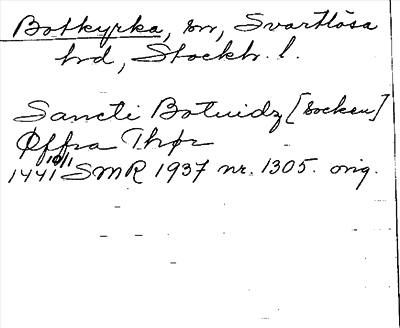 Botkyrka, sn, Svartlösa
hd, Stockh. l.
Sancti Botuidz [socken]
Øffra Thør
10/11
1441 SMR 1937 nr. 1305. orig.